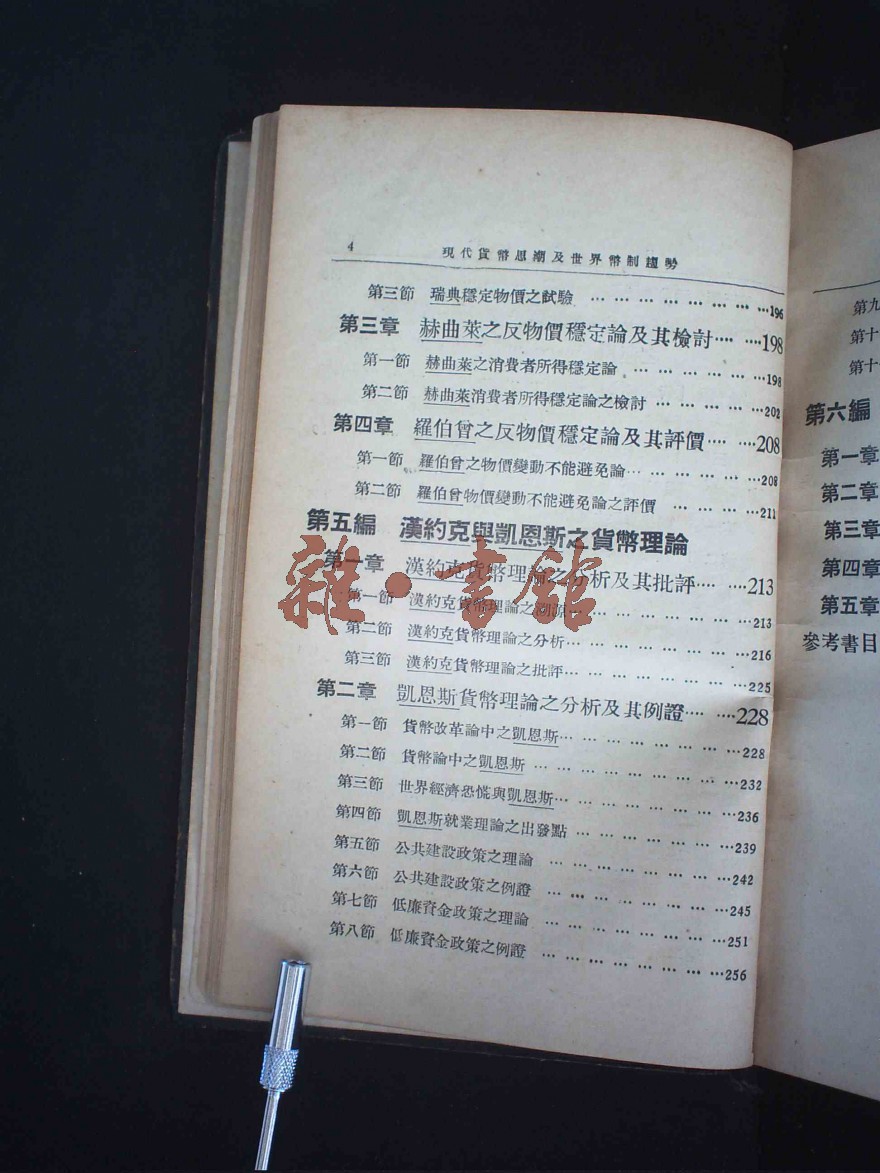 4 現代貨幣思潮及世界幣制趨勢
第三節 瑞典穩定物價之試驗 … … … … … … …196
第三章 赫曲萊之反物價穩定論及其檢討… …198
第一節 赫曲萊之消費者所得穩定論 … … … … … …198
第二節 赫曲萊消費者所得穩定論之檢討 … … … … …202
第四章 羅伯曾之反物價穩定論及其評價… …208
第一節 羅伯曾之物價變動不能避免論… … … … … …208
第二節 羅伯曾物價變動不能避免論之評價 … … … … …211
第五編 漢約克與凱恩斯之貨幣理論
第一章 漢約克貨幣理論之分析及其批評… …213
第一節 漢約克貨幣理論之溯源… … … … … … … …213
第二節 漢約克貨幣理論之分析… … … … … … … …216
第三節 漢約克貨幣理論之批評… … … … … … … …225
第二章 凱恩斯貨幣理論之分析及其例證… …228
第一節 貨幣改革論中之凱恩斯… … … … … … … …228
第二節 貨幣論中之凱恩斯 … … … … … … … … …232
第三節 世界經濟恐慌與凱恩斯… … … … … … … …236
第四節 凱恩斯就業理論之出發點 … … … … … … …239
第五節 公共建設政策之理論 … … … … … … … …242
第六節 公共建設政策之例證 … … … … … … … …245
第七節 低廉資金政策之理論 … … … … … … … …251
第八節 低廉資金政策之例證 … … … … … … … …256
雜·書館
第九
第十
第十
第六編
第一章
第二章
第三章
第四章
第五章
參考書目